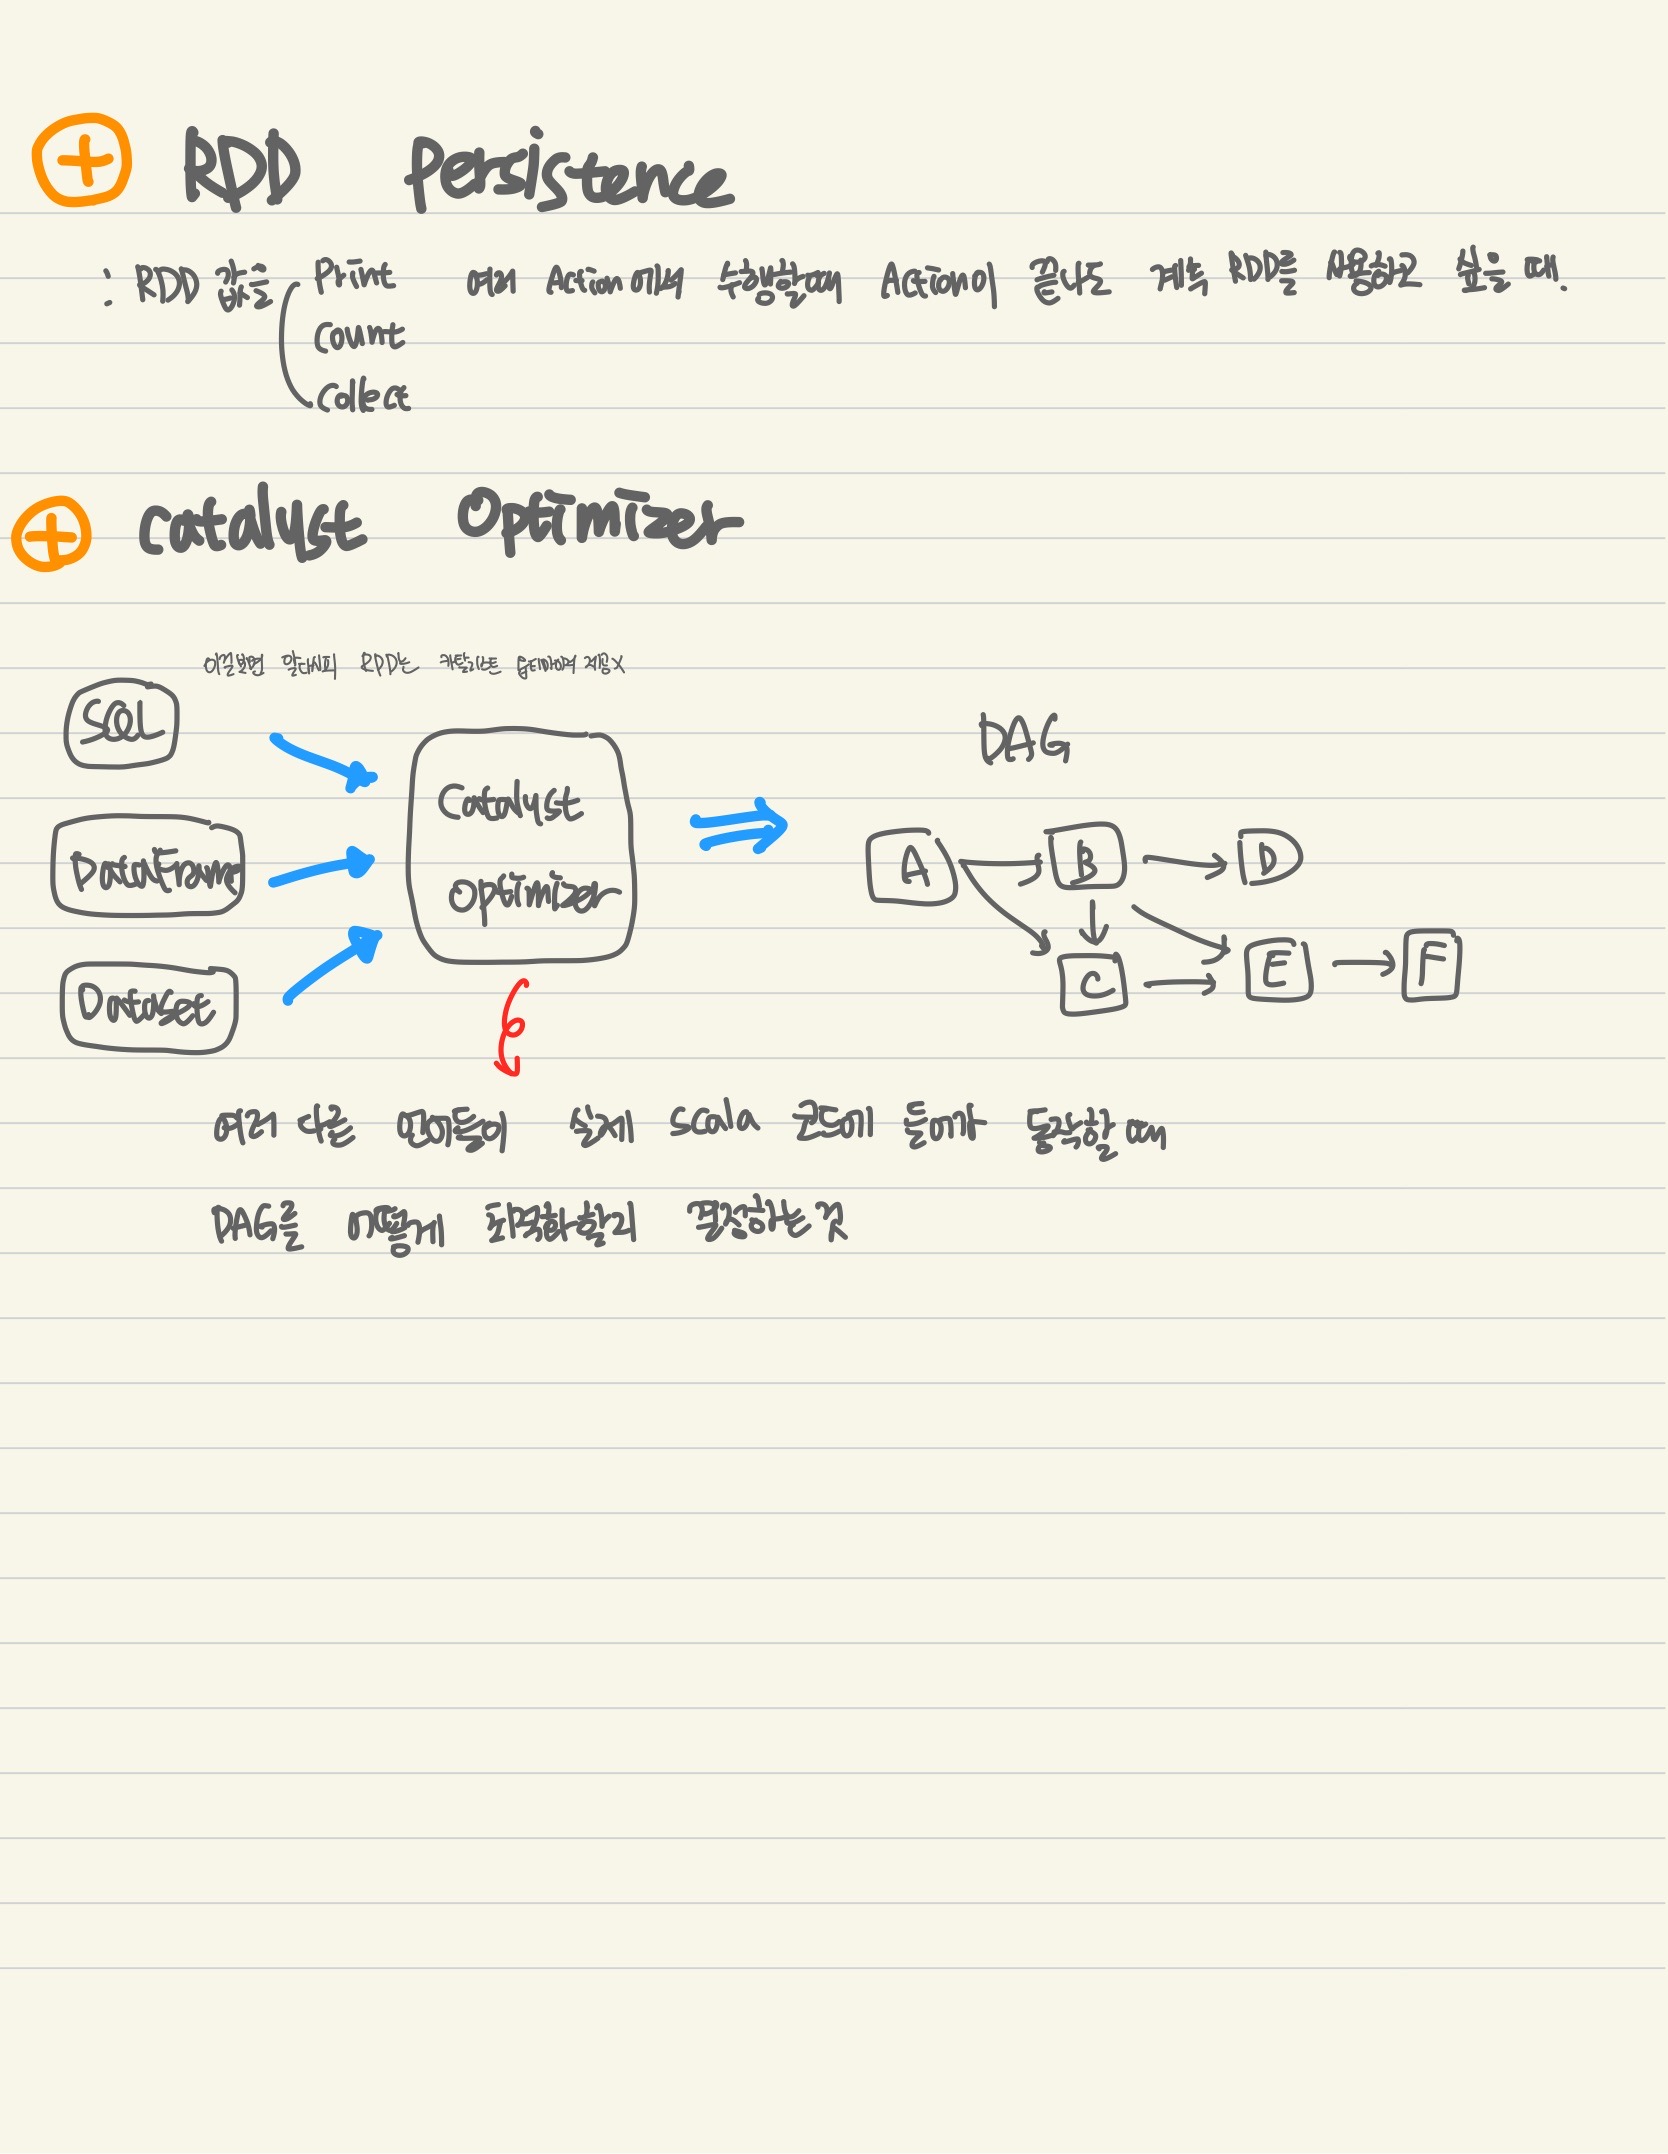 + RDD Persistence
: RDD 값을 Print 여러 Action에서 수행할때 Action이 끝나도 계속 RDD를 사용하고 싶을 때.
Count
Collect
+ Catalyst Optimizer
이걸보면 알다시피 RDD는 카탈리스트 옵티마이저 제공X
SQL
DataFrame
Dataset
Catalyst
Optimizer
DAG
A B D
C E F
여러 다른 언어들이 실제 Scala 코드에 들어가 동작할 때
DAG를 어떻게 최적화할지 결정하는 것